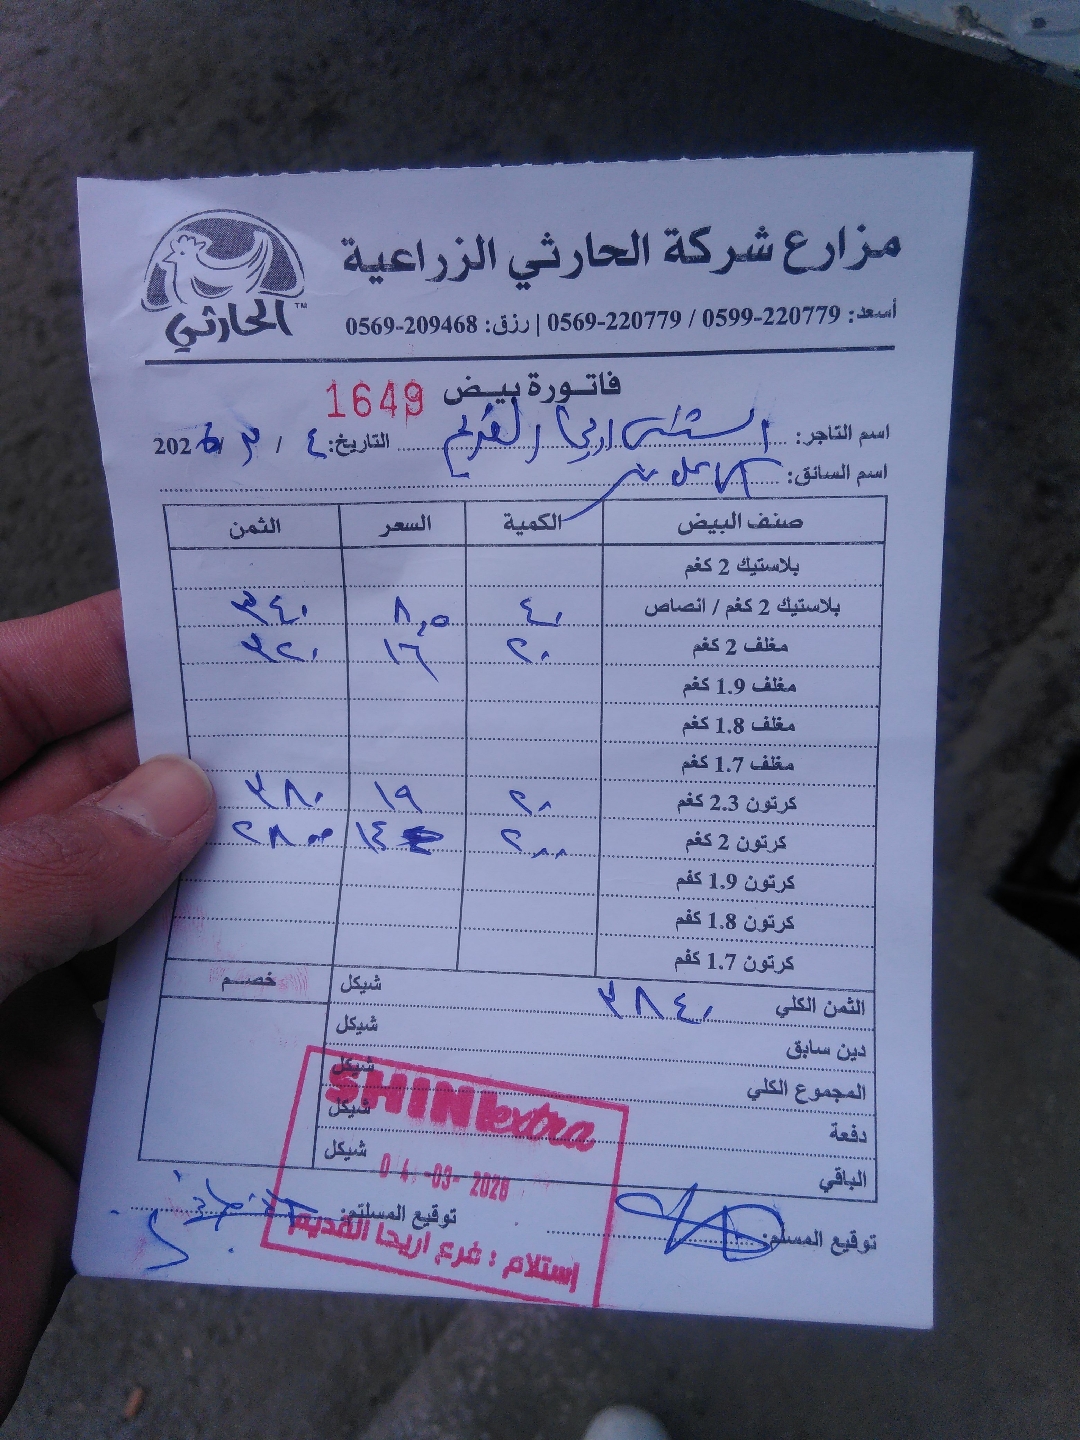 مزارع شركة الحارثي الزراعية
الحارثي™
أسعد: 0599-220779 / 0569-220779 | رزق: 0569-209468
فاتورة بيض 1649
اسم التاجر: اريحا القديم التاريخ: ٤ / ٣ / 2026
اسم السائق:
صنف البيض الكمية السعر الثمن
بلاستيك 2 كغم
بلاستيك 2 كغم / انصاص ٤٠ ٨,٥ ٣٤٠
مغلف 2 كغم ٢٠ ١٦ ٣٢٠
مغلف 1.9 كغم
مغلف 1.8 كغم
مغلف 1.7 كغم
كرتون 2.3 كغم ٢٠ ١٩ ٣٨٠
كرتون 2 كغم ٢٠٠ ١٤ ٢٨٠٠
كرتون 1.9 كغم
كرتون 1.8 كغم
كرتون 1.7 كغم
الثمن الكلي ٣٨٤٠ شيكل خصم
دين سابق شيكل
المجموع الكلي شيكل
دفعة شيكل
الباقي شيكل
SHINI extra
04 -03- 2026
إستلام : فرع اريحا القديم
توقيع المسلم: توقيع المستلم: